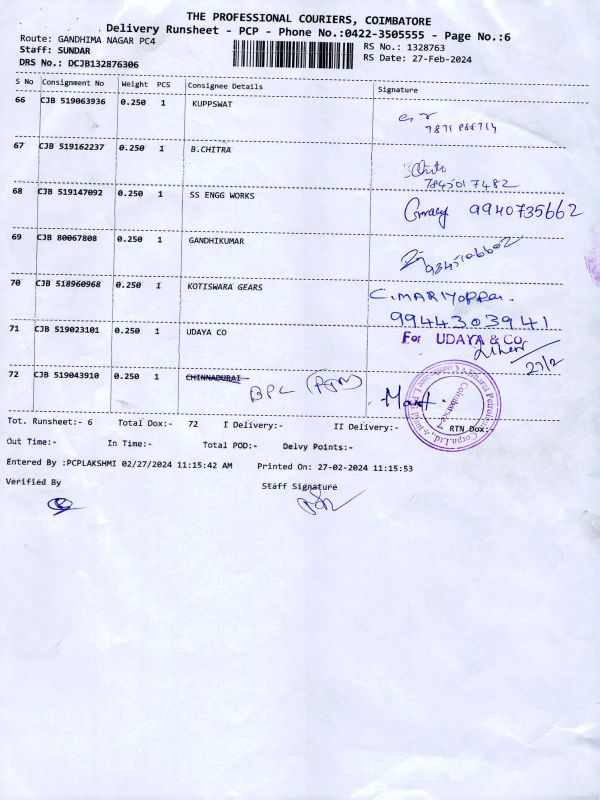 THE PROFESSIONAL COURIERS, COIMBATORE
Delivery Runsheet - PCP - Phone No.:0422-3505555 - Page No.:6
Route: GANDHIMA NAGAR PC4
RS No.: 1328763
Staff: SUNDAR
RS Date: 27-Feb-2024
DRS No.: DCJB132876306
S No Consignment No Weight PCS Consignee Details Signature
66 CJB 519063936 0.250 1 KUPPSWAT
67 CJB 519162237 0.250 1 B.CHITRA
7845017482
68 CJB 519147092 0.250 1 SS ENGG WORKS 9940735662
69 CJB 80067808 0.250 1 GANDHIKUMAR
70 CJB 518960968 0.250 1 KOTISWARA GEARS C.MARIYappa.
9944303941
71 CJB 519023101 0.250 1 UDAYA CO For UDAYA & CO
27/2
72 CJB 519043910 0.250 1 CHINNADURAI
BPC
Tot. Runsheet:- 6 Total Dox:- 72 I Delivery:- II Delivery:- RTN Dox:-
Out Time:- In Time:- Total POD:- Delvy Points:-
Entered By :PCPLAKSHMI 02/27/2024 11:15:42 AM Printed On: 27-02-2024 11:15:53
Verified By Staff Signature